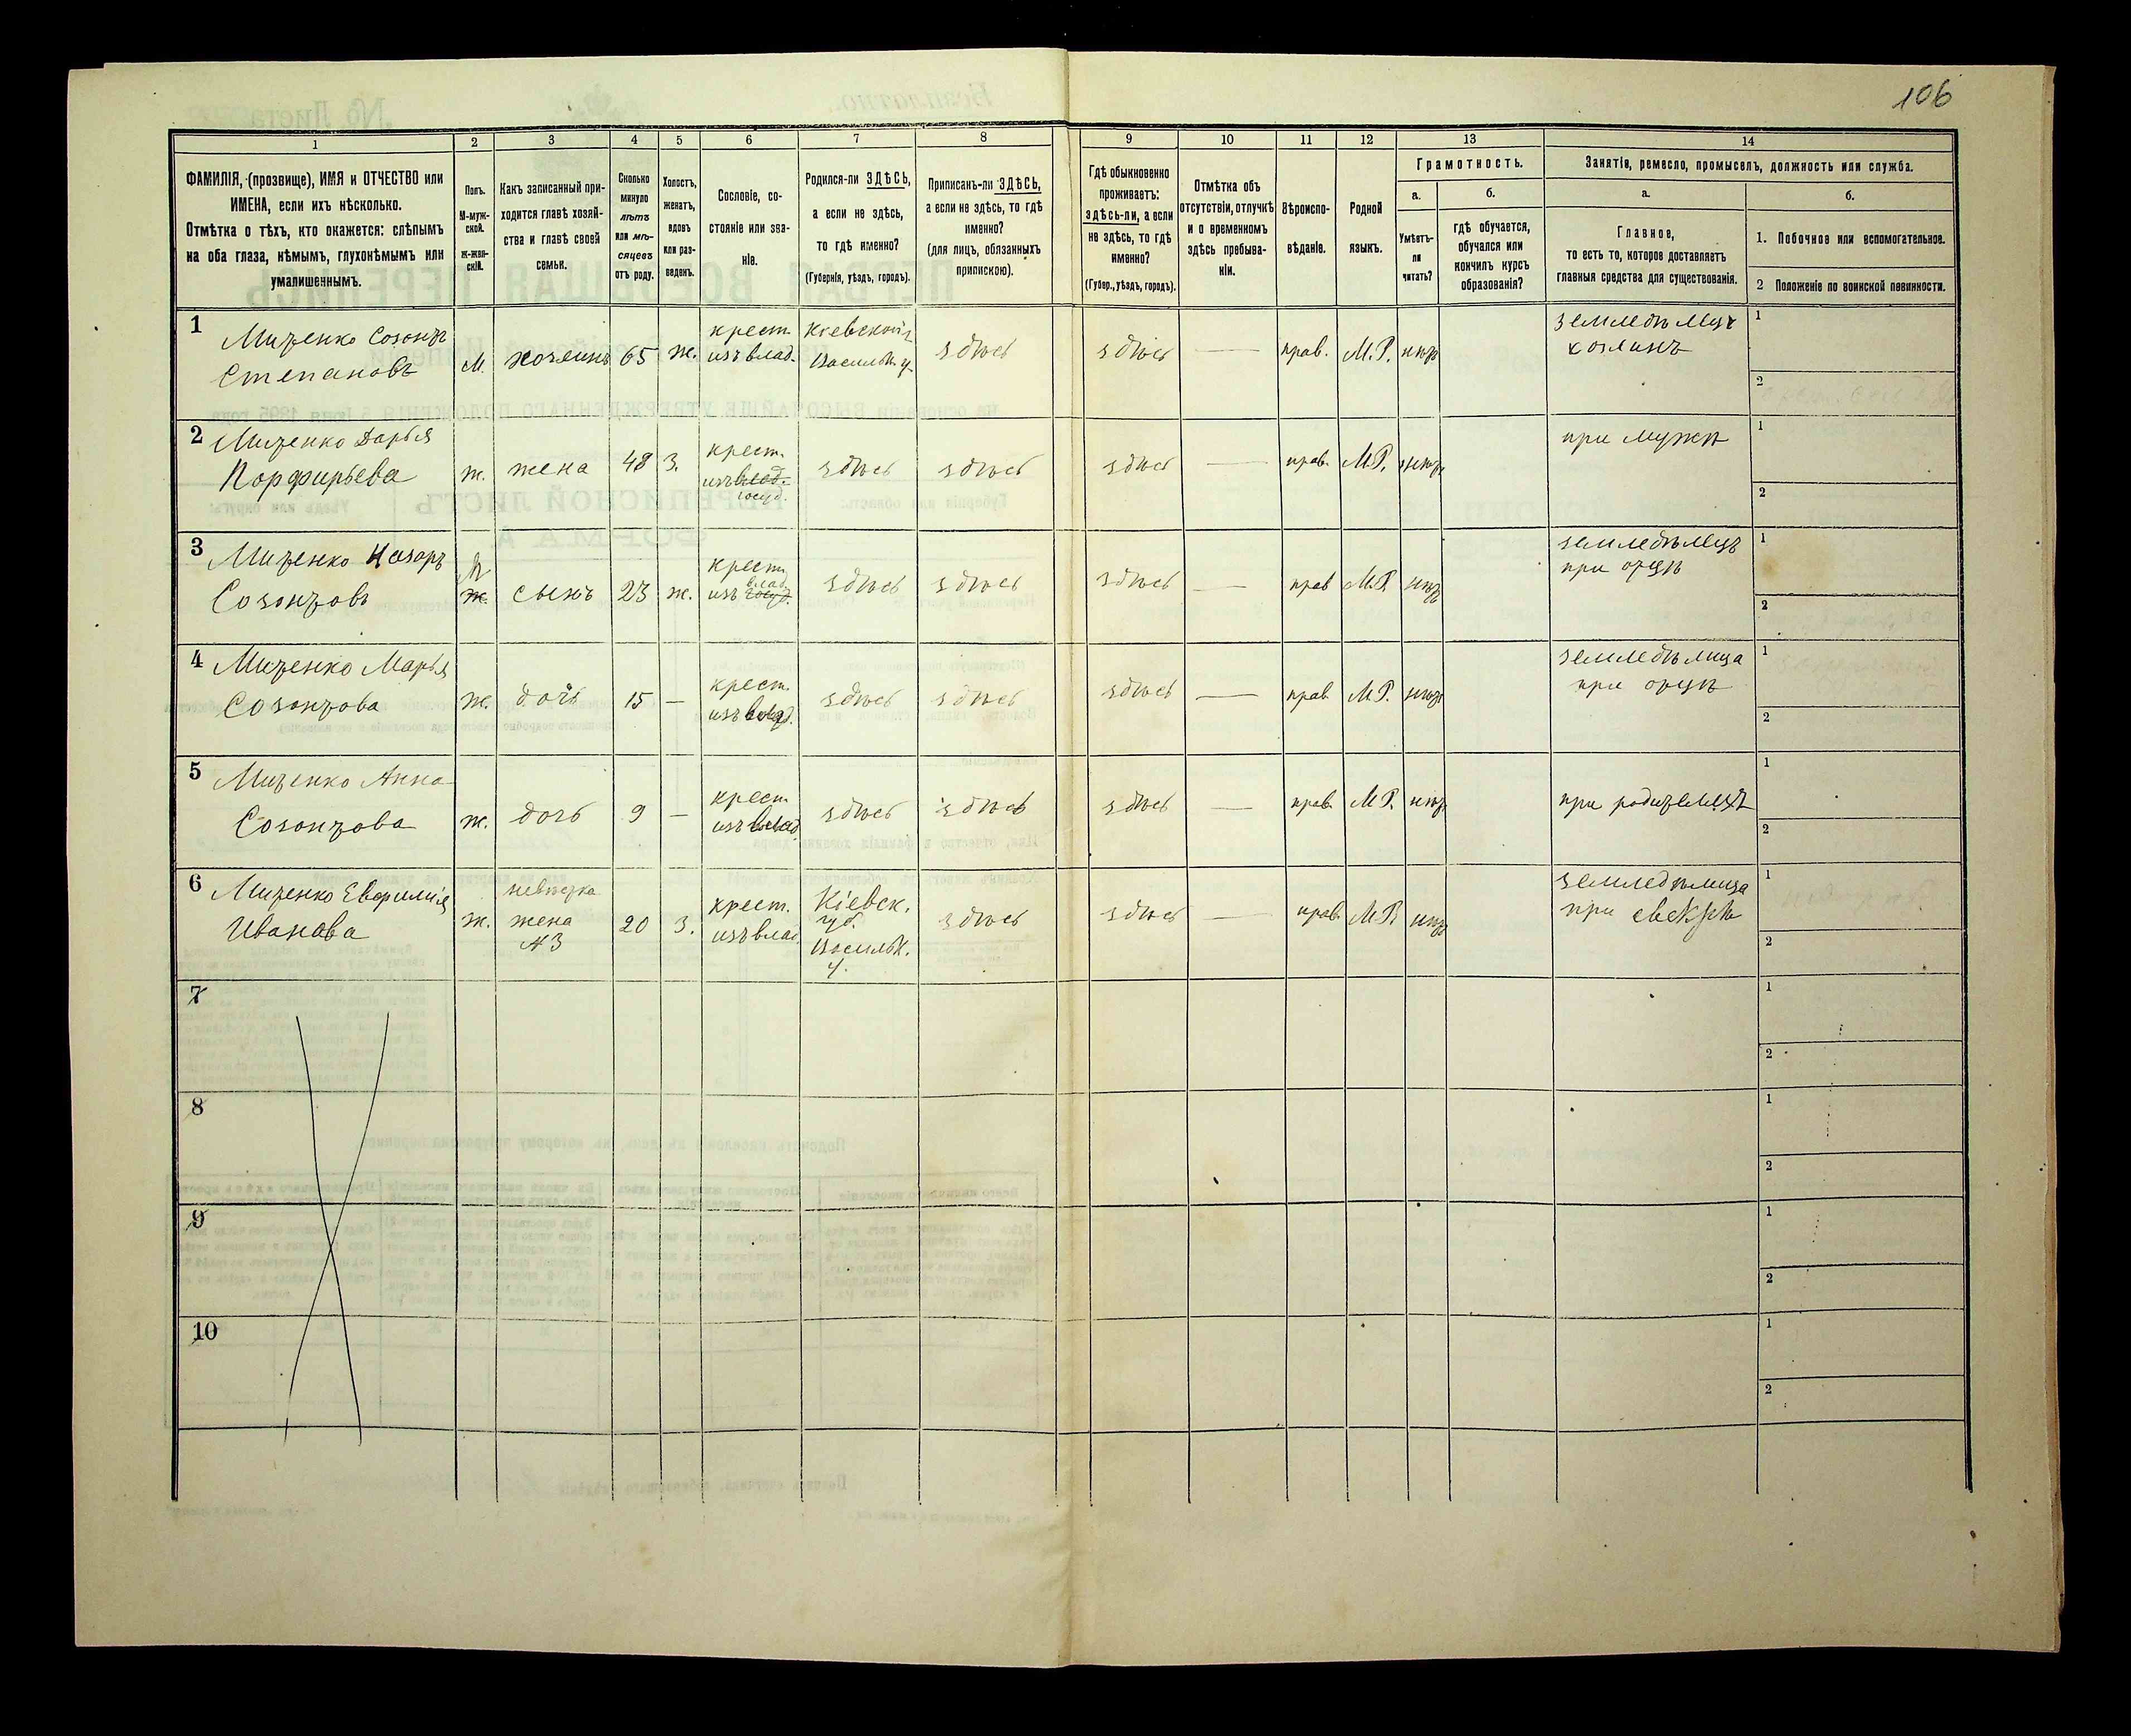 106
1
2
3
4
5
6
7
8
9
10
11
12
13
14
ФАМИЛІЯ, (прозвище), ИМЯ и ОТЧЕСТВО или
ИМЕНА, если ихъ нѣсколько.
Отмѣтка о тѣхъ, кто окажется: слѣпымъ
на оба глаза, нѣмымъ, глухонѣмымъ или
умалишеннымъ.
Полъ.
М-муж-
ской.
Ж-жен-
скій.
Какъ записанный при-
ходится главѣ хозяй-
ства и главѣ своей
семьи.
Сколько
минуло
лѣтъ
или мѣ-
сяцевъ
отъ роду.
Холостъ,
женатъ,
вдовъ
или раз-
веденъ.
Сословіе, со-
стояніе или зва-
ніе.
Родился-ли ЗДѢСЬ,
а если не здѣсь,
то гдѣ именно?
(Губернія, уѣздъ, городъ).
Приписанъ-ли ЗДѢСЬ,
а если не здѣсь, то гдѣ
именно?
(для лицъ, обязанныхъ
припискою).
Гдѣ обыкновенно
проживаетъ:
здѣсь-ли, а если
не здѣсь, то гдѣ
именно?
(Губер., уѣздъ, городъ).
Отмѣтка объ
отсутствіи, отлучкѣ
и о временномъ
здѣсь пребыва-
ніи.
Вѣроиспо-
вѣданіе.
Родной
языкъ.
Грамотность.
а.
Умѣетъ-
ли
читать?
б.
гдѣ обучается,
обучался или
кончилъ курсъ
образованія?
Занятіе, ремесло, промыселъ, должность или служба.
а.
Главное,
то есть то, которое доставляетъ
главныя средства для существованія.
б.
1. Побочное или вспомогательное.
2 Положеніе по воинской повинности.
1
Митенко Созонтъ
Степановъ
М.
хозяинъ
65
ж.
крест.
изъ влад.
Кіевской г.
Васильк. у.
здѣсь
здѣсь
—
прав.
М.Р.
нѣтъ
земледѣлецъ
хозяинъ
1
2
2
Митенко Дарья
Порфирьева
ж.
жена
48
з.
крест.
изъ влад.
госуд.
здѣсь
здѣсь
здѣсь
—
прав.
М.Р.
нѣтъ
при мужѣ
1
2
3
Митенко Назаръ
Созонтовъ
М
ж.
сынъ
23
ж.
крест.
влад.
изъ госуд.
здѣсь
здѣсь
здѣсь
—
прав
М.Р.
нѣтъ
земледѣлецъ
при отцѣ
1
2
4
Митенко Марья
Созонтова
ж.
дочь
15
—
крест.
изъ влад.
здѣсь
здѣсь
здѣсь
—
прав
М.Р.
нѣтъ
земледѣлица
при отцѣ
1
2
5
Митенко Анна
Созонтова
ж.
дочь
9
—
крест.
изъ влад.
здѣсь
здѣсь
здѣсь
—
прав.
М.Р.
нѣтъ
при родителяхъ
1
2
6
Митенко Евфимія
Иванова
ж.
невѣстка
жена
№3
20
з.
крест.
изъ влад
Кіевск.
губ.
Васильк.
у.
здѣсь
здѣсь
—
прав
М.Р.
нѣтъ
земледѣлица
при свекрѣ
1
2
7
1
2
8
1
2
9
1
2
10
1
2